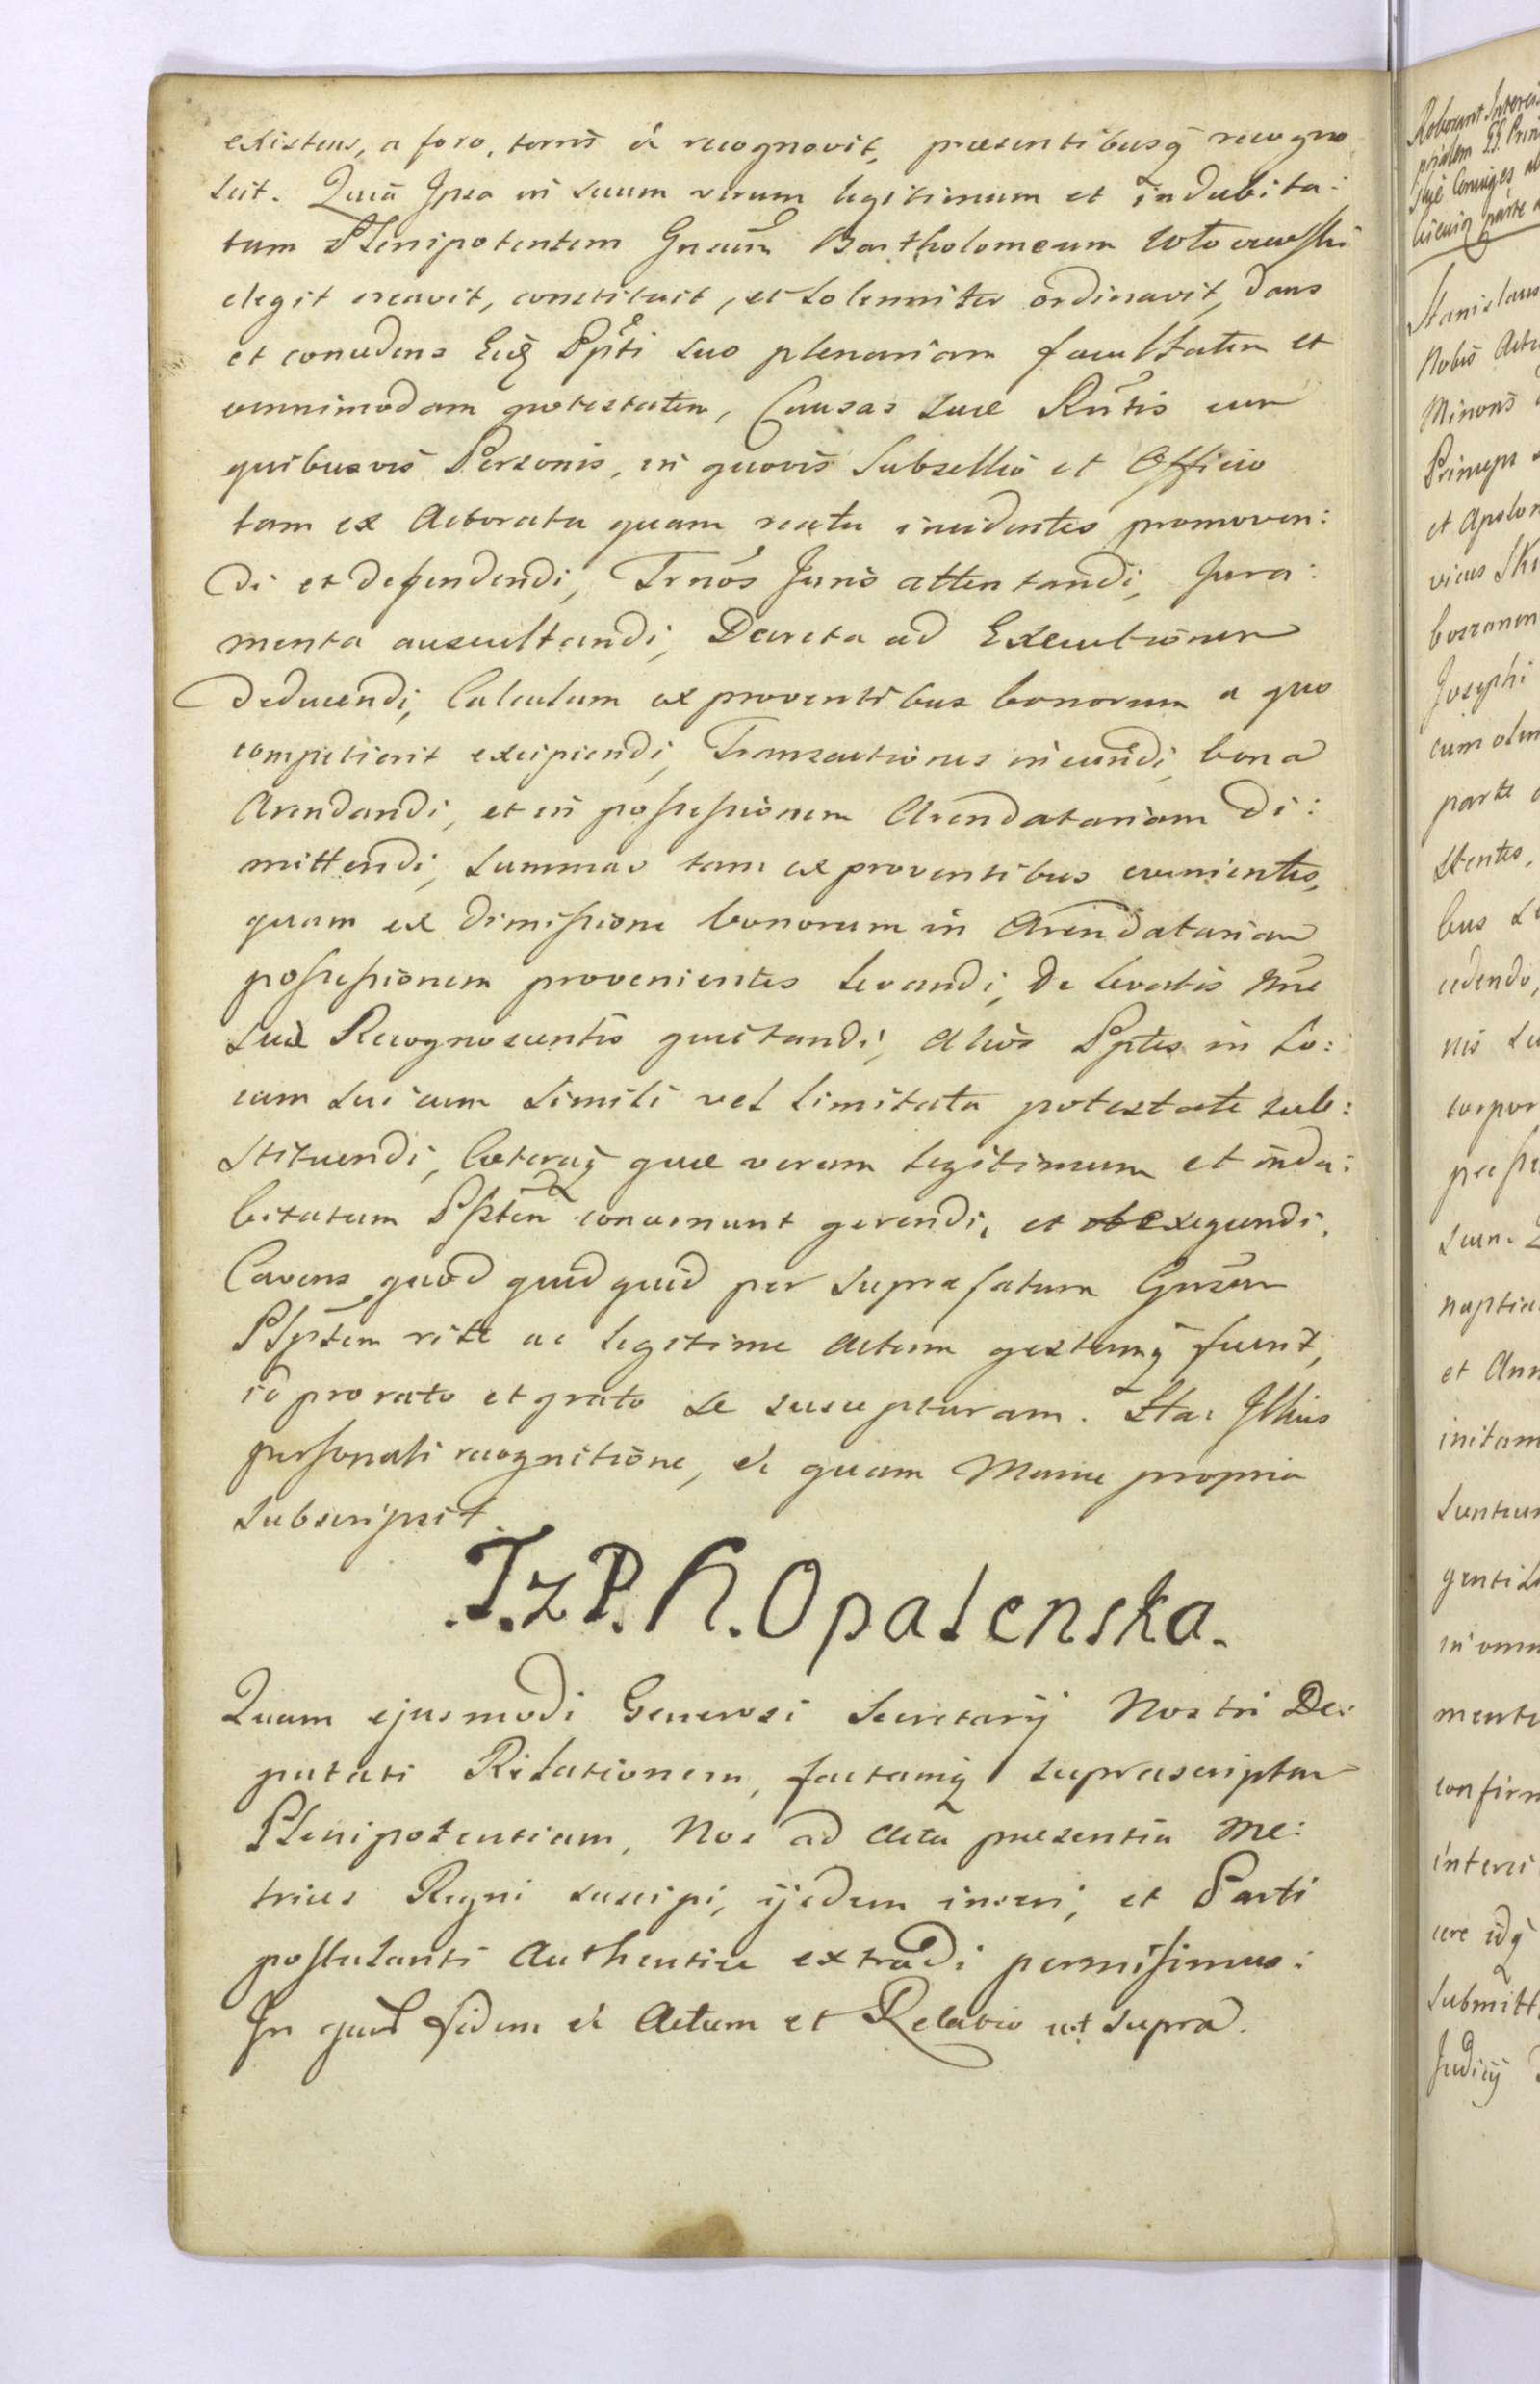 existens, a foro, terris &c recognovit, præsentibusq̃ recogno
scit. Quia Ipsa in suum verum legitimum et indubita:
tum Plenipotentem Gnsum Bartholomeum
elegit creavit, constituit, et solenniter ordinavit, dans
et concedens Eidq̃ Plpt̃i suo plenariam facultatem et
omnimodam potestatem, Causas suæ Rñtis cum
quibusvis Personis, in quovis Subsellio et Officio
tam ex Actoratu quam reatu incidentes promoven:
di et defendendi, Trnos Juris attentandi, Jura:
menta auscultandi, Decreta ad Executionem
deducendi, Calculum ex proventibus bonorum a quo
competierit excipiendi, Transactiones ineundi, bona
Arendandi, et in possessionem Arendatariam di:
mittendi, summas tam ex proventibus evenientes,
quam ex dimissione bonorum in Arendatariam
possessionem provenientes levandi, De levatis nñe
suæ Recognoscentis quietandi, alios Plptes in lo:
cum sui cum simili vel limitata potestate sub:
stituendi, Cæteraq̃ quæ verum legitimum et indu:
bitatum Plptem concernunt gerendi, et exequendi.
Cavens quod quidquid per suprafatum Gnsum
Plptem rite ac legitime actum gestumq̃ fuerit,
id pro rato et grato se suscepturam. Stat Illius
personali recognitione, &c quam Manu propria
subscripsit
T. z P. K. Opalenska.
Quam ejusmodi Generosi Secretarij Nostri De:
putati Relationem, factamq̃ suprascriptam
Plenipotentiam, Nos ad Acta præsentia Me:
trices Regni suscipi, ijsdem inseri, et Parti
postulanti Authentice extradi permisimus:
In quor̃ fidem &c Actum et Relatio ut supra.
Stanislaus
Nobis
Minoris
Princeps
et Apolon
vicus
Josephi
cum olim
parte
bus
cedendo,
nis
corpor
nuptia
et Ann
initam
in omn
confirm
cere idq̃
submitt
Judicij